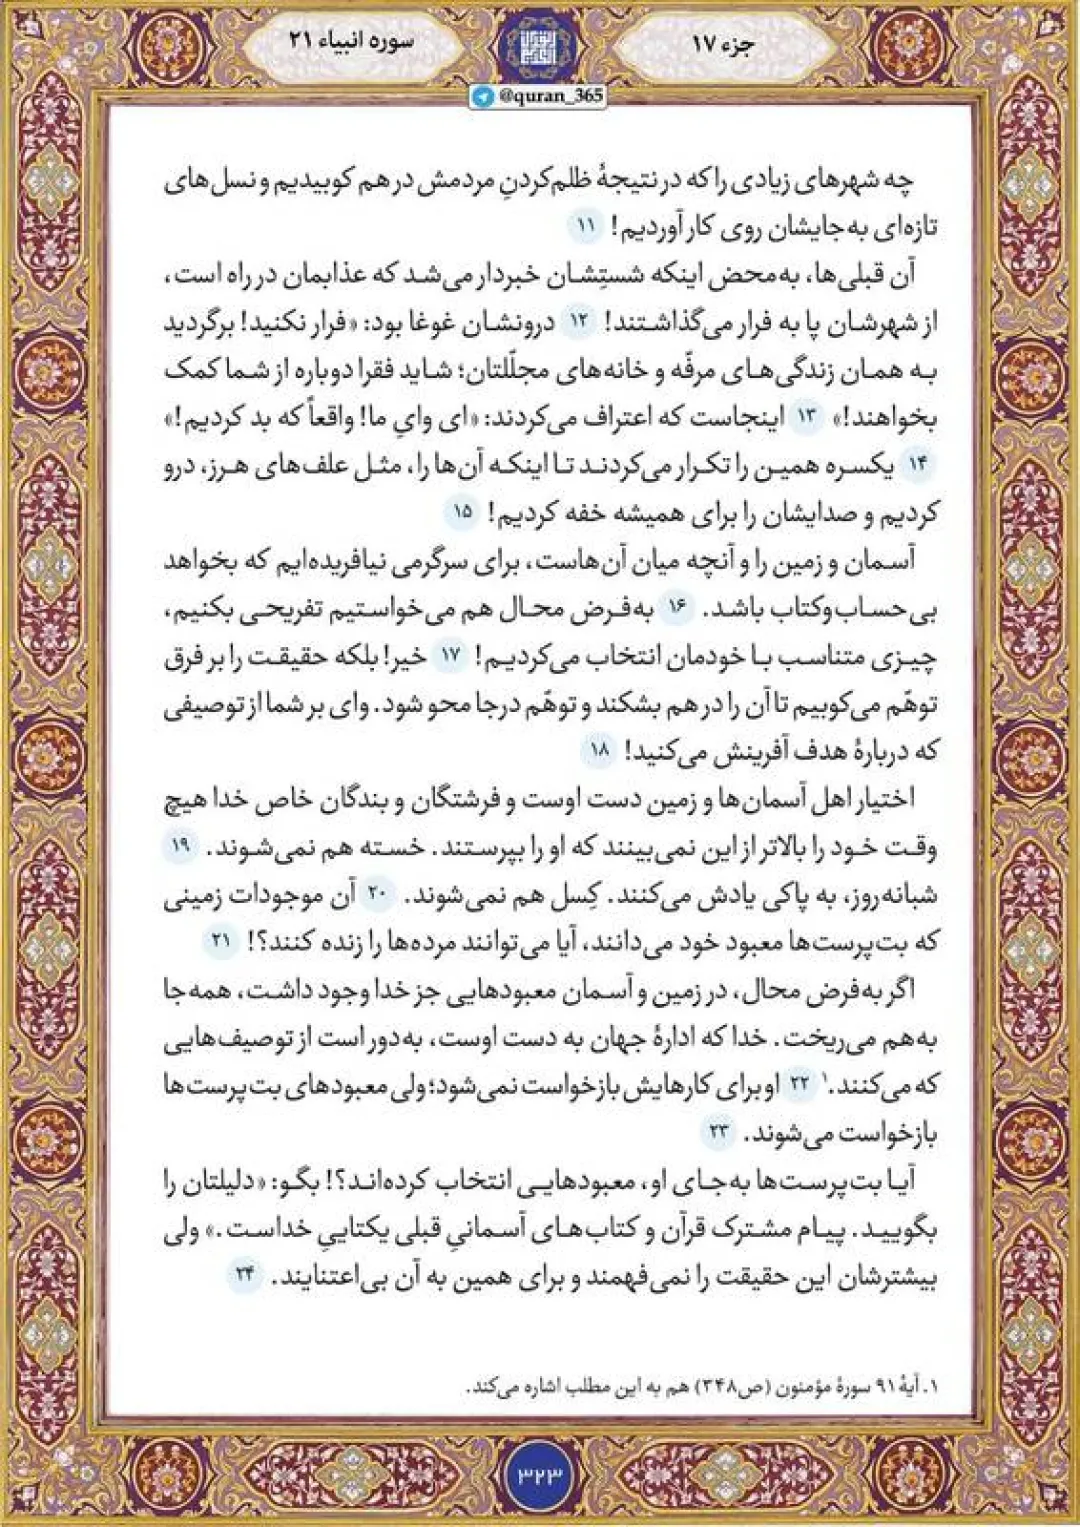 جزء ۱۷
سوره انبیاء ۲۱
@quran_365
چه شهرهای زیادی را که در نتیجهٔ ظلم‌کردنِ مردمش در هم کوبیدیم و نسل‌های
تازه‌ای به‌جایشان روی کار آوردیم! ۱۱
آن قبلی‌ها، به‌محض اینکه شستِشان خبردار می‌شد که عذابمان در راه است،
از شهرشان پا به فرار می‌گذاشتند! ۱۲ درونشان غوغا بود: «فرار نکنید! برگردید
به همان زندگی‌های مرفّه و خانه‌های مجلّلتان؛ شاید فقرا دوباره از شما کمک
بخواهند!» ۱۳ اینجاست که اعتراف می‌کردند: «ای وایِ ما! واقعاً که بد کردیم!»
۱۴ یکسره همین را تکرار می‌کردند تا اینکه آن‌ها را، مثل علف‌های هرز، درو
کردیم و صدایشان را برای همیشه خفه کردیم! ۱۵
آسمان و زمین را و آنچه میان آن‌هاست، برای سرگرمی نیافریده‌ایم که بخواهد
بی‌حساب‌وکتاب باشد. ۱۶ به‌فرض محال هم می‌خواستیم تفریحی بکنیم،
چیزی متناسب با خودمان انتخاب می‌کردیم! ۱۷ خیر! بلکه حقیقت را بر فرق
توهّم می‌کوبیم تا آن را در هم بشکند و توهّم درجا محو شود. وای بر شما از توصیفی
که دربارهٔ هدف آفرینش می‌کنید! ۱۸
اختیار اهل آسمان‌ها و زمین دست اوست و فرشتگان و بندگان خاص خدا هیچ
وقت خود را بالاتر از این نمی‌بینند که او را بپرستند. خسته هم نمی‌شوند. ۱۹
شبانه‌روز، به پاکی یادش می‌کنند. کِسل هم نمی‌شوند. ۲۰ آن موجودات زمینی
که بت‌پرست‌ها معبود خود می‌دانند، آیا می‌توانند مرده‌ها را زنده کنند؟! ۲۱
اگر به‌فرض محال، در زمین و آسمان معبودهایی جز خدا وجود داشت، همه‌جا
به‌هم می‌ریخت. خدا که ادارهٔ جهان به دست اوست، به‌دور است از توصیف‌هایی
که می‌کنند.۱ ۲۲ او برای کارهایش بازخواست نمی‌شود؛ ولی معبودهای بت‌پرست‌ها
بازخواست می‌شوند. ۲۳
آیا بت‌پرست‌ها به‌جای او، معبودهایی انتخاب کرده‌اند؟! بگو: «دلیلتان را
بگویید. پیام مشترک قرآن و کتاب‌های آسمانیِ قبلی یکتاییِ خداست.» ولی
بیشترشان این حقیقت را نمی‌فهمند و برای همین به آن بی‌اعتنایند. ۲۴
۱. آیهٔ ۹۱ سورهٔ مؤمنون (ص۳۴۸) هم به این مطلب اشاره می‌کند.
۳۲۳